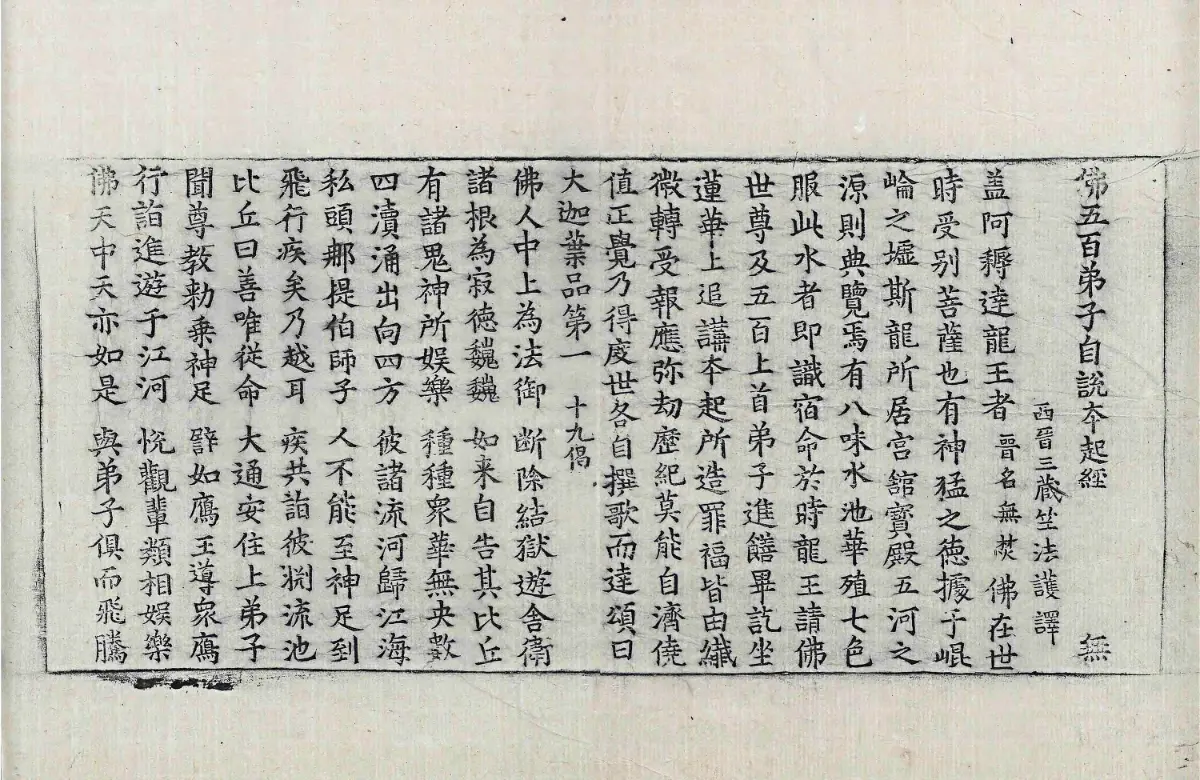 佛五百弟子自說夲起經 無
西晉三藏竺法護譯
盖阿耨達龍王者晉名無焚佛在世
時受别菩薩也有神猛之徳據于崐
崘之墟斯龍所居宫舘寳殿五河之
源則典覽焉有八味水池華殖七色
服此水者即識宿命於時龍王請佛
世尊及五百上首弟子進饍畢訖坐
蓮華上追講夲起所造罪福皆由纎
微轉受報應弥劫歷紀莫能自濟僥
值正覺乃得度世各自撰歌而達頌曰
大迦葉品第一 十九偈
佛人中上為法御 斷除結獄遊舎衛
諸根為寂徳巍巍 如来自告其比丘
有諸鬼神所娱樂 種種衆華無央數
四瀆涌出向四方 彼諸流河歸江海
私頭那提伯師子 人不能至神足到
飛行疾矣乃越耳 疾共詣彼淵流池
比丘曰善唯從命 大通安住上弟子
聞尊教勑乗神足 譬如鴈王導衆鴈
行詣進遊于江河 恱觀輩類相娱樂
佛天中天亦如是 與弟子俱而飛騰